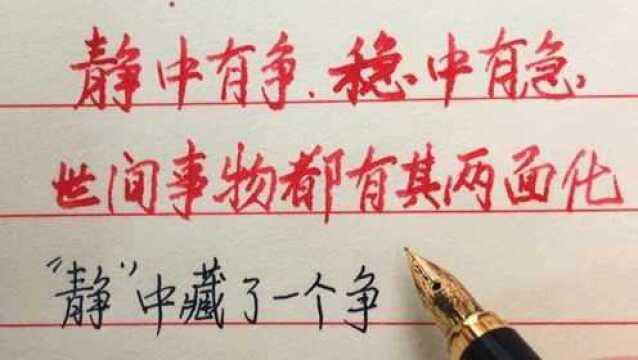 静中有争、稳中有急,
世间事物都有其两面化
“静”中藏了一个争